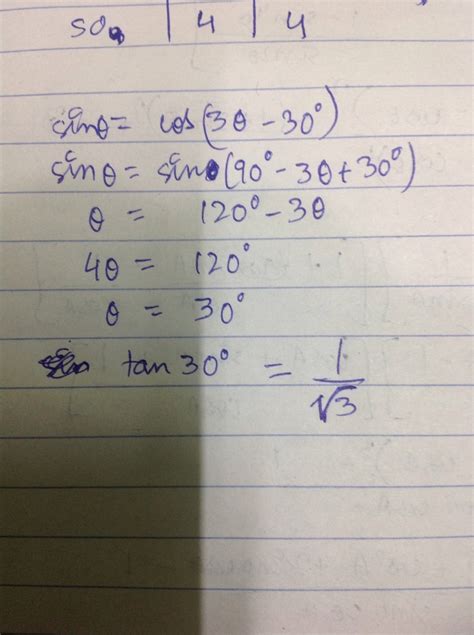 so, | 4 | 4
sinθ = cos(3θ - 30°)
sinθ = sin(90° - 3θ + 30°)
θ = 120° - 3θ
4θ = 120°
θ = 30°
tan 30° = 1/√3